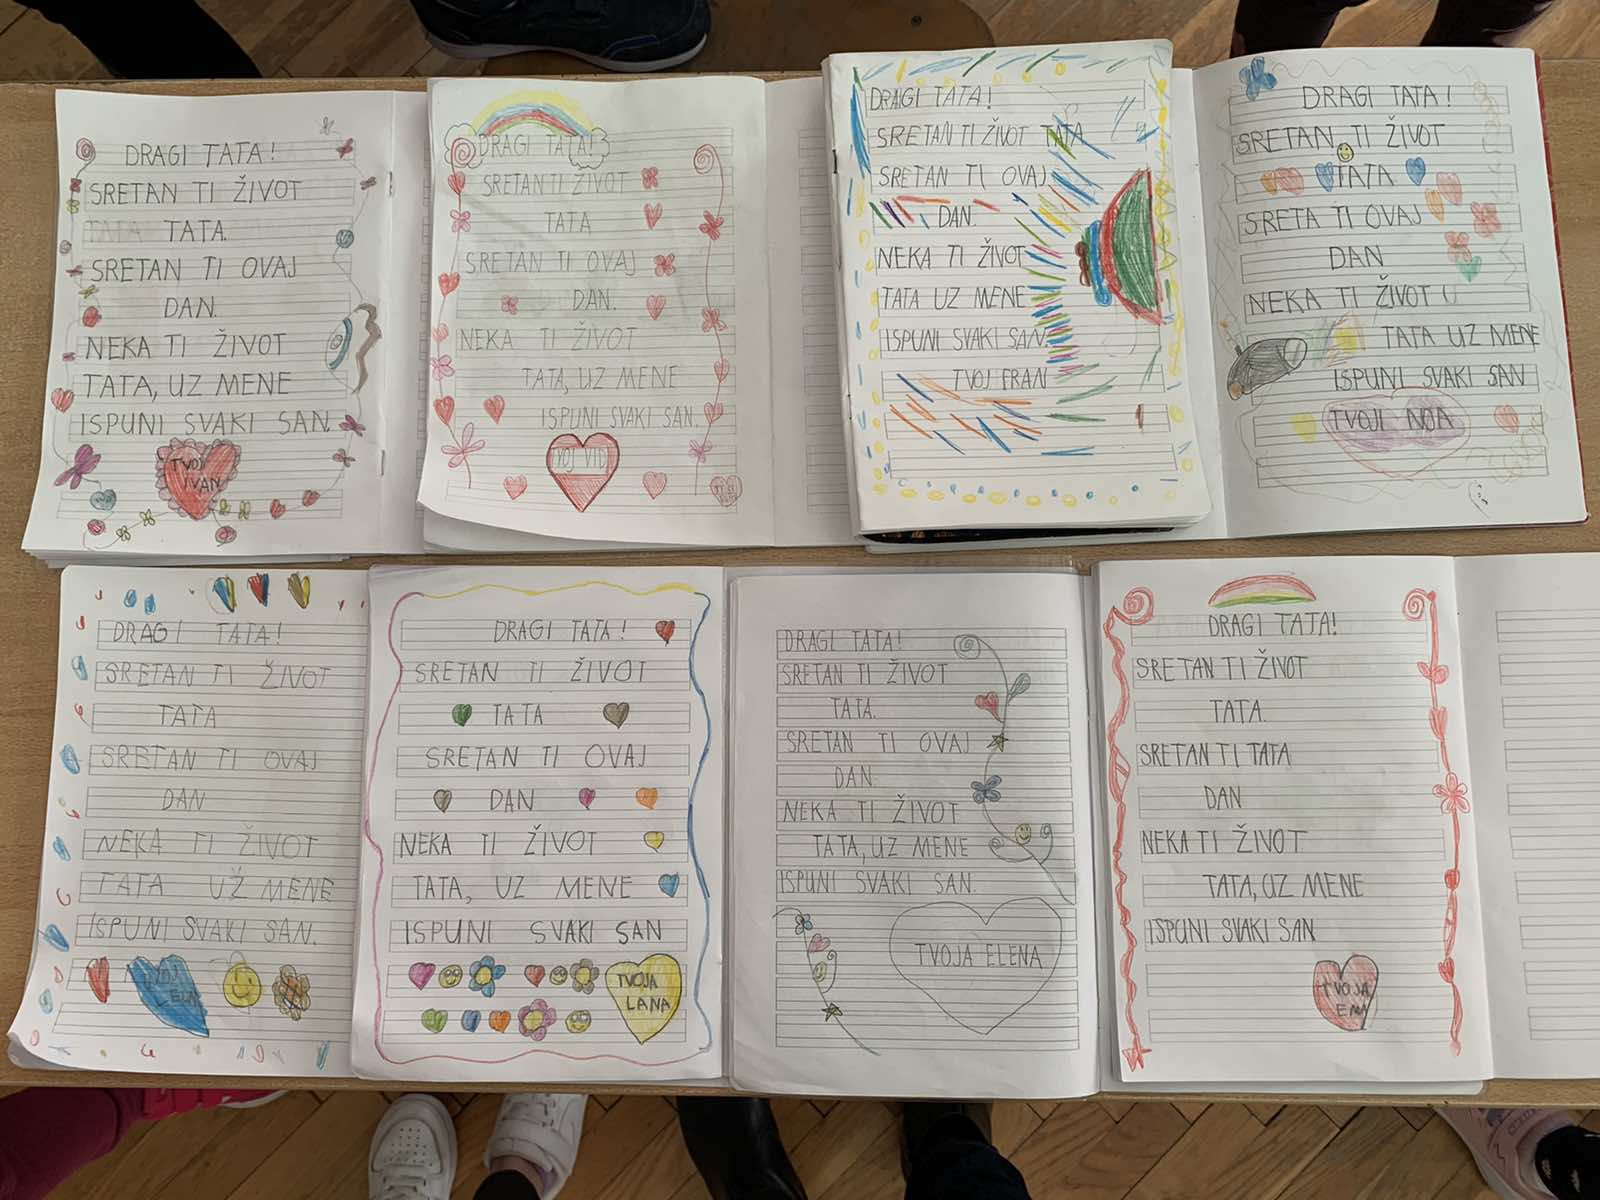 DRAGI TATA!
SRETAN TI ŽIVOT
TATA TATA.
SRETAN TI OVAJ
DAN.
NEKA TI ŽIVOT
TATA, UZ MENE
ISPUNI SVAKI SAN.
TVOJ
IVAN
DRAGI TATA!
SRETAN TI ŽIVOT
TATA
SRETAN TI OVAJ
DAN.
NEKA TI ŽIVOT
TATA, UZ MENE
ISPUNI SVAKI SAN.
TVOJ VID
DRAGI TATA!
SRETAN TI ŽIVOT TATA
SRETAN TI OVAJ
DAN.
NEKA TI ŽIVOT
TATA UZ MENE
ISPUNI SVAKI SAN.
TVOJ FRAN
DRAGI TATA!
SRETAN TI ŽIVOT
TATA
SRETA TI OVAJ
DAN
NEKA TI ŽIVOT
TATA UZ MENE
ISPUNI SVAKI SAN
TVOJI NOA
DRAGI TATA!
SRETAN TI ŽIVOT
TATA
SRETAN TI OVAJ
DAN
NEKA TI ŽIVOT
TATA UŽ MENE
ISPUNI SVAKI SAN.
TVOJ
DRAGI TATA!
SRETAN TI ŽIVOT
TATA
SRETAN TI OVAJ
DAN
NEKA TI ŽIVOT
TATA, UZ MENE
ISPUNI SVAKI SAN
TVOJA
LANA
DRAGI TATA!
SRETAN TI ŽIVOT
TATA.
SRETAN TI OVAJ
DAN
NEKA TI ŽIVOT
TATA, UZ MENE
ISPUNI SVAKI SAN.
TVOJA ELENA
DRAGI TATA!
SRETAN TI ŽIVOT
TATA.
SRETAN TI TATA
DAN
NEKA TI ŽIVOT
TATA, UZ MENE
ISPUNI SVAKI SAN
TVOJA
EMA